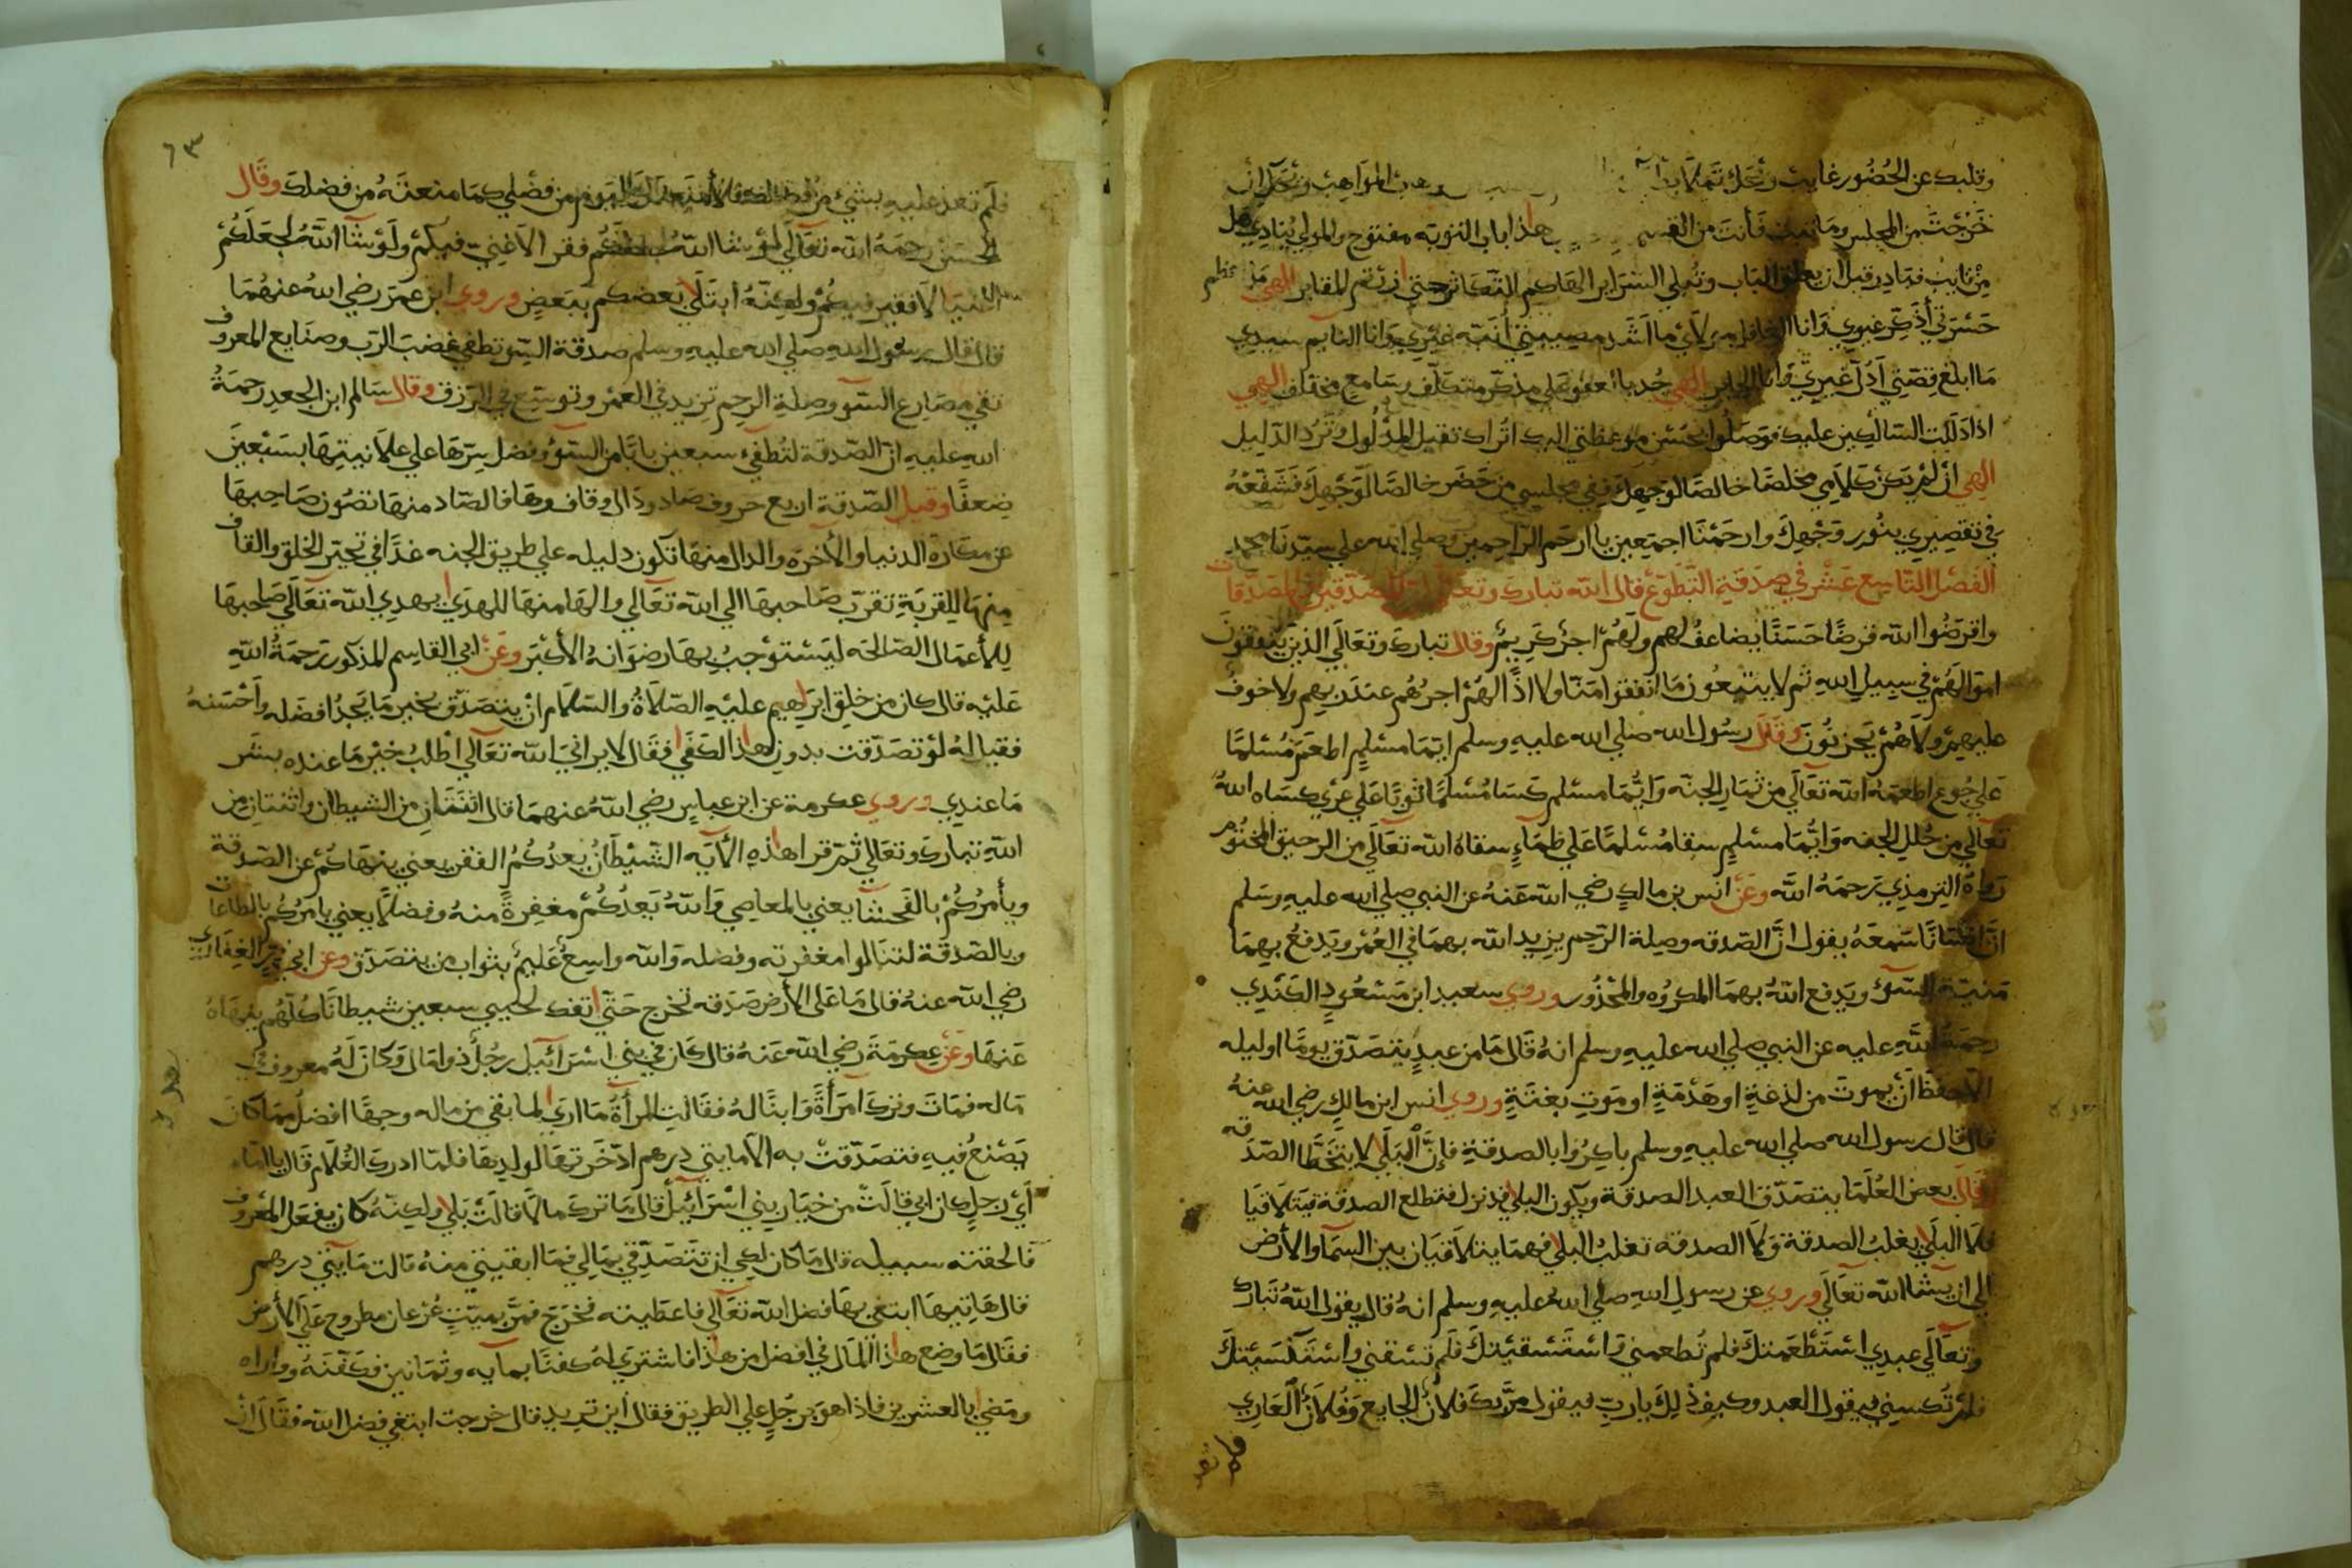 وقلبك عن الحضور غايب
خرجت من المجلس وما تبت فأنت من القسم هذا باب التوبه مفتوح والمولي ينادي هل
من تايب فبادر قبل ان يغلق الباب وتبلي السراير الهاكم التكاثر حتي زرتم المقابر الهي ما اعظم
حسرتي أذكر غيري وانا الغافل مولاي ما اشد مصيبتي أنبه غيري وانا النايم سيدي
ما ابلغ قصتي أدل غيري وانا الحاير الهي جد بالعفو علي مذكر متكلف وسامع متخلف الهي
اذا دللت السالكين عليك فوصلوا بحسن موعظتي اليك اتراك تقبل المدلول وترد الدليل
الهي ان لم يكن كلامي مخلصا خالصا لوجهك ففي مجلسي من حضر خالصا لوجهك فشفعه
في تقصيري بنور وجهك وارحمنا اجمعين يا ارحم الراحمين وصلي الله علي سيدنا محمد
الفصل التاسع عشر في صدقة التطوع قال الله تبارك وتعالي ان المصدقين والمصدقات
واقرضوا الله قرضا حسنا يضاعف لهم ولهم اجر كريم وقال تبارك وتعالي الذين ينفقون
اموالهم في سبيل الله ثم لا يتبعون ما انفقوا منا ولا اذا لهم اجرهم عند ربهم ولا خوف
عليهم ولا هم يحزنون وقال رسول الله صلي الله عليه وسلم ايما مسلم اطعم مسلما
علي جوع اطعمه الله تعالي من ثمار الجنه وايما مسلم كسا مسلما ثوبا علي عري كساه الله
تعالي من حلل الجنه وايما مسلم سقا مسلما علي ظماء سقاه الله تعالي من الرحيق المختوم
رواه الترمذي رحمه الله وعن انس بن مالك رضي الله عنه عن النبي صلي الله عليه وسلم
سمعه يقول ان الصدقه وصلة الرحم يزيد الله بهما في العمر ويدفع بهما
منية السوء ويدفع الله بهما المكروه والمحذور وروي سعيد ابن مسعود الكندي
رحمة الله عليه عن النبي صلي الله عليه وسلم انه قال ما من عبد يتصدق يوما او ليله
الا حفظ أن يموت من لدغة او هدمة او موت بغتة وروي انس ابن مالك رضي الله عنه
قال قال رسول الله صلي الله عليه وسلم باكروا بالصدقة فإن البلا لا يتخطا الصدقه
وقال بعض العلما يتصدق العبد الصدقة ويكون البلا قد نزل فتطلع الصدقة فيتلاقيا
فلا البلا يغلب الصدقة ولا الصدقه تغلب البلا فهما يتلاقيان بين السما والأرض
الي ان يشا الله تعالي وروي عن رسول الله صلي الله عليه وسلم انه قال يقول الله تبارك
وتعالي عبدي استطعمتك فلم تطعمني واستسقيتك فلم تسقني واستكسيتك
فلم تكسيني فيقول العبد وكيف ذلك يا رب فيقول مر بك فلان الجايع وفلان العاري
فلم تعد
٦٣
فلم تعد عليه بشئ من فضلك فلأمنعنك اليوم من فضلي كما منعته من فضلك وقال
الحسن رحمه الله تعالي لو شا الله لجعلكم فقرا لا غني فيكم ولو شا الله لجعلكم
اغنيا لا فقير فيكم ولكنه ابتلا بعضكم ببعض وروي ابن عمر رضي الله عنهما
قال قال رسول الله صلي الله عليه وسلم صدقة السر تطفي غضب الرب وصنايع المعروف
تقي مصارع السوء وصلة الرحم تزيد في العمر وتوسع في الرزق وقال سالم ابن الجعد رحمة
الله عليه ان الصدقة لتطفئ سبعين بابا من السوء وفضل سرها علي علانيتها بسبعين
ضعفا وقيل الصدقة اربع حروف صاد ودال وقاف وها فالصاد منها تصون صاحبها
عن مكاره الدنيا والأخرة والدال منها تكون دليله علي طريق الجنه غدا في تحير الخلق والقاف
منها للقربة تقرب صاحبها الي الله تعالي والها منها للهدي يهدي الله تعالي صاحبها
للأعمال الصالحه ليستوجب بها رضوانه الأكبر وعن ابي القاسم المذكور رحمة الله
عليه قال كان من خلق ابراهيم عليه الصلاة والسلام ان يتصدق بخير ما يجد افضله وأحسنه
فقيل له لو تصدقت بدون هذا لكفي فقال لا يراني الله تعالي اطلب خير ما عنده بشر
ما عندي وروي عكرمة عن ابن عباس رضي الله عنهما قال اثنتان من الشيطان واثنتان من
الله تبارك وتعالي ثم قرا هذه الأيه الشيطان يعدكم الفقر يعني ينهاكم عن الصدقة
ويأمركم بالفحشا يعني بالمعاصي والله يعدكم مغفرة منه وفضلا يعني يامركم بالطاعات
وبالصدقة لتنالوا مغفرته وفضله والله واسع عليم بثواب من يتصدق وعن ابي ذر الغفاري
رضي الله عنه قال ما علي الأرض صدقه تخرج حتي تفك لحيي سبعين شيطانا كلهم ينهاه
عنها وعن عكرمة رضي الله عنه قال كان في بني اسرائيل رجلا ذوا مال وكان له معروف في
ماله فمات وترك امرأة وابنا له فقالت المرأة ما اري لما بقي من ماله وجها افضل مما كان
يصنع فيه فتصدقت به الا مايتي درهم ادخرتها لولدها فلما ادرك الغلام قال يا اماه
أي رجل كان ابي قالت من خيار بني اسرائيل قال ما ترك مالا قالت بلي ولكنه كان يفعل المعروف
فالحقته سبيله قال ما كان لكي ان تتصدقي بمالي فما ابقيتي منه قالت مايتي درهم
قال هاتيها ابتغي بها فضل الله تعالي فاعطيته فخرج فمر بميت عريان مطروح علي الأرض
فقال ما وضع هذا المال في افضل من هذا فاشتري له كفنا بمايه وثمانين فكفنه وواراه
ومضي بالعشرين فاذا هو برجل علي الطريق فقال اين تريد قال خرجت ابتغي فضل الله فقال ان